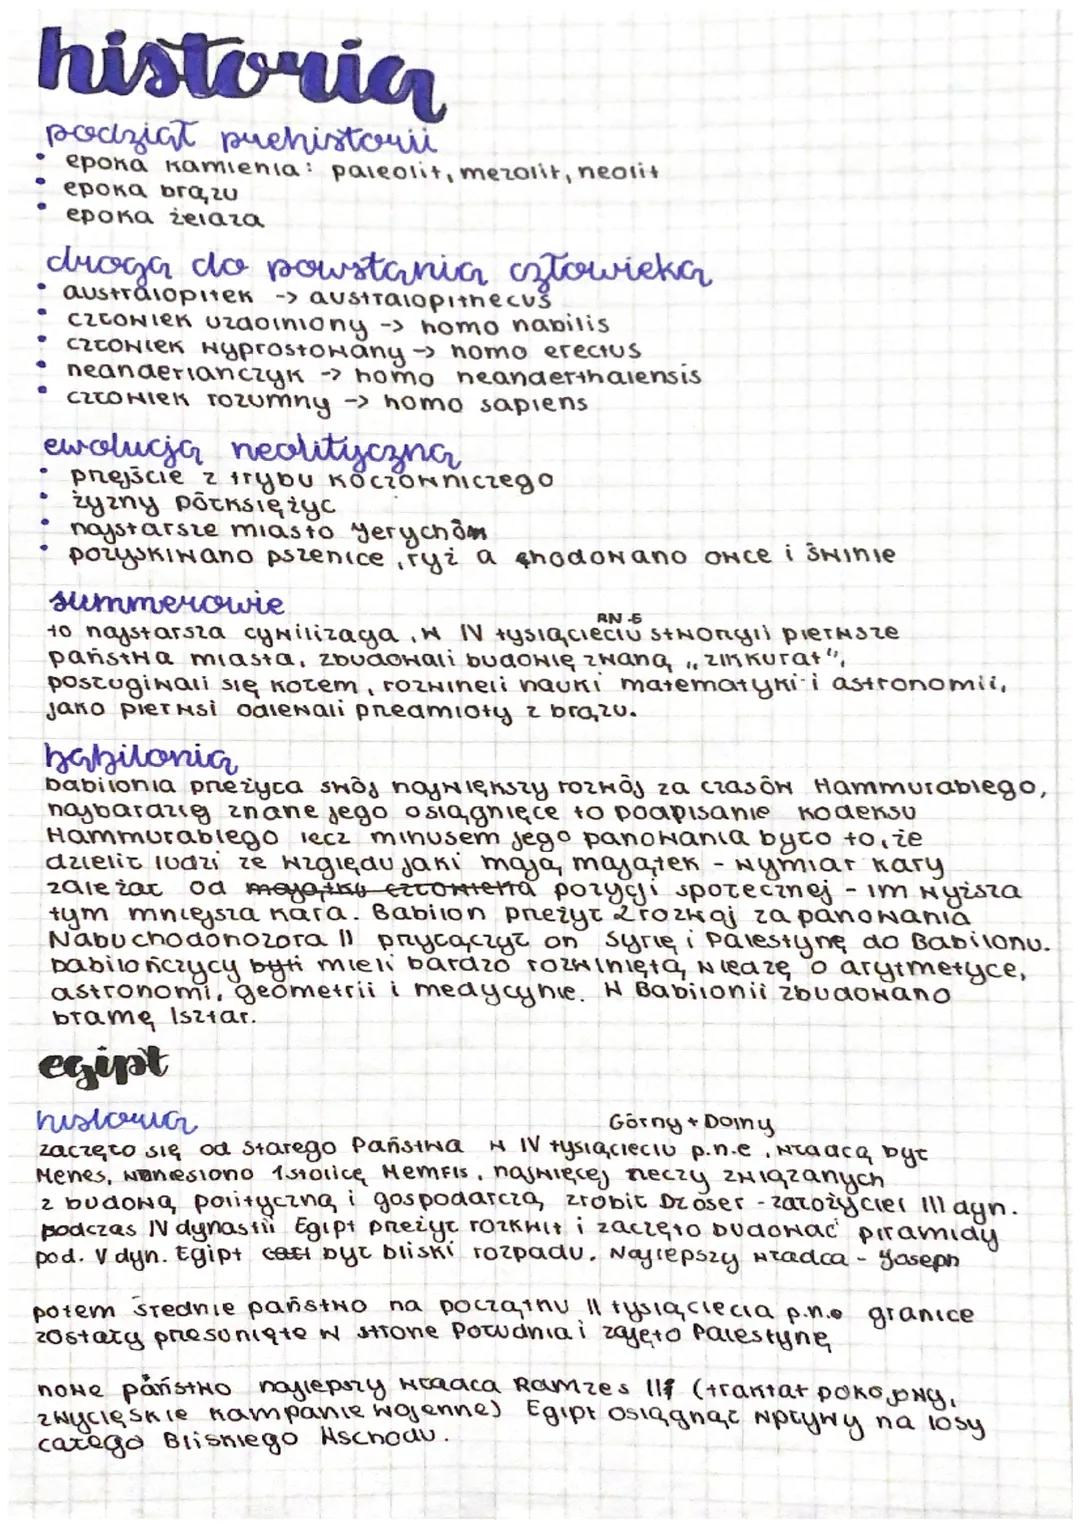 historia
podział prehistorii
• epoka kamienia: paleolit, mezolit, neolit
• epoka brązu
• epoka żelaza
droga do powstania człowieka
• australopitek -> australopithecus
• człowiek uzdolniony -> homo habilis
• człowiek wyprostowany -> homo erectus
• neandertańczyk -> homo neanderthalensis
• człowiek rozumny -> homo sapiens
ewolucja neolityczna
• przejście z trybu koczowniczego
• żyzny półksiężyc
• najstarsze miasto Jerychom
• pozyskiwano pszenice, ryż a chodowano owce i świnie
summerowie
to najstarsza cywilizacja, w IV tysiącieciu stworzyli pierwsze
państwa miasta, zbudowali budowlę zwaną „zikkurat",
posługiwali się kołem, rozwineli nauki matematyki i astronomii,
jako pierwsi odlewali przedmioty z brązu.
babilonia
babilonia przeżyła swój największy rozwój za czasów Hammurabiego,
najbardziej znane jego osiągnięce to podpisanie kodeksu
Hammurabiego lecz minusem jego panowania było to, że
dzielił ludzi ze względu jaki mają majątek - wymiar kary
zależał od majątku człowieka pozycji społecznej - im wyższa
tym mniejsza kara. Babilon przeżył 2 rozwój za panowania
Nabuchodonozora II przyłączył on Syrię i Palestynę do Babilonu.
babilończycy byli mieli bardzo rozwiniętą wiedzę o arytmetyce,
astronomi, geometrii i medycynie. W Babilonii zbudowano
bramę Isztar.
egipt
historia
Górny + Dolny
zaczęło się od Starego Państwa w IV tysiącleciu p.n.e, władcą był
Menes, wzniesiono 1 stolicę Memfis, najwięcej rzeczy związanych
z budową polityczną i gospodarczą zrobił Dżoser - założyciel III dyn.
podczas IV dynastii Egipt przeżył rozkwit i zaczęto budować piramidy
pod. V dyn. Egipt był bliski rozpadu. Najlepszy władca - Joseph
potem średnie państwo na początku II tysiąclecia p.n.e granice
zostały przesunięte w strone Południa i zajęto Palestynę
nowe państwo najlepszy władca Ramzes II (traktat pokojowy,
zwycięskie kampanie wojenne) Egipt osiągnął wpływy na losy
całego Bliskiego Wschodu.